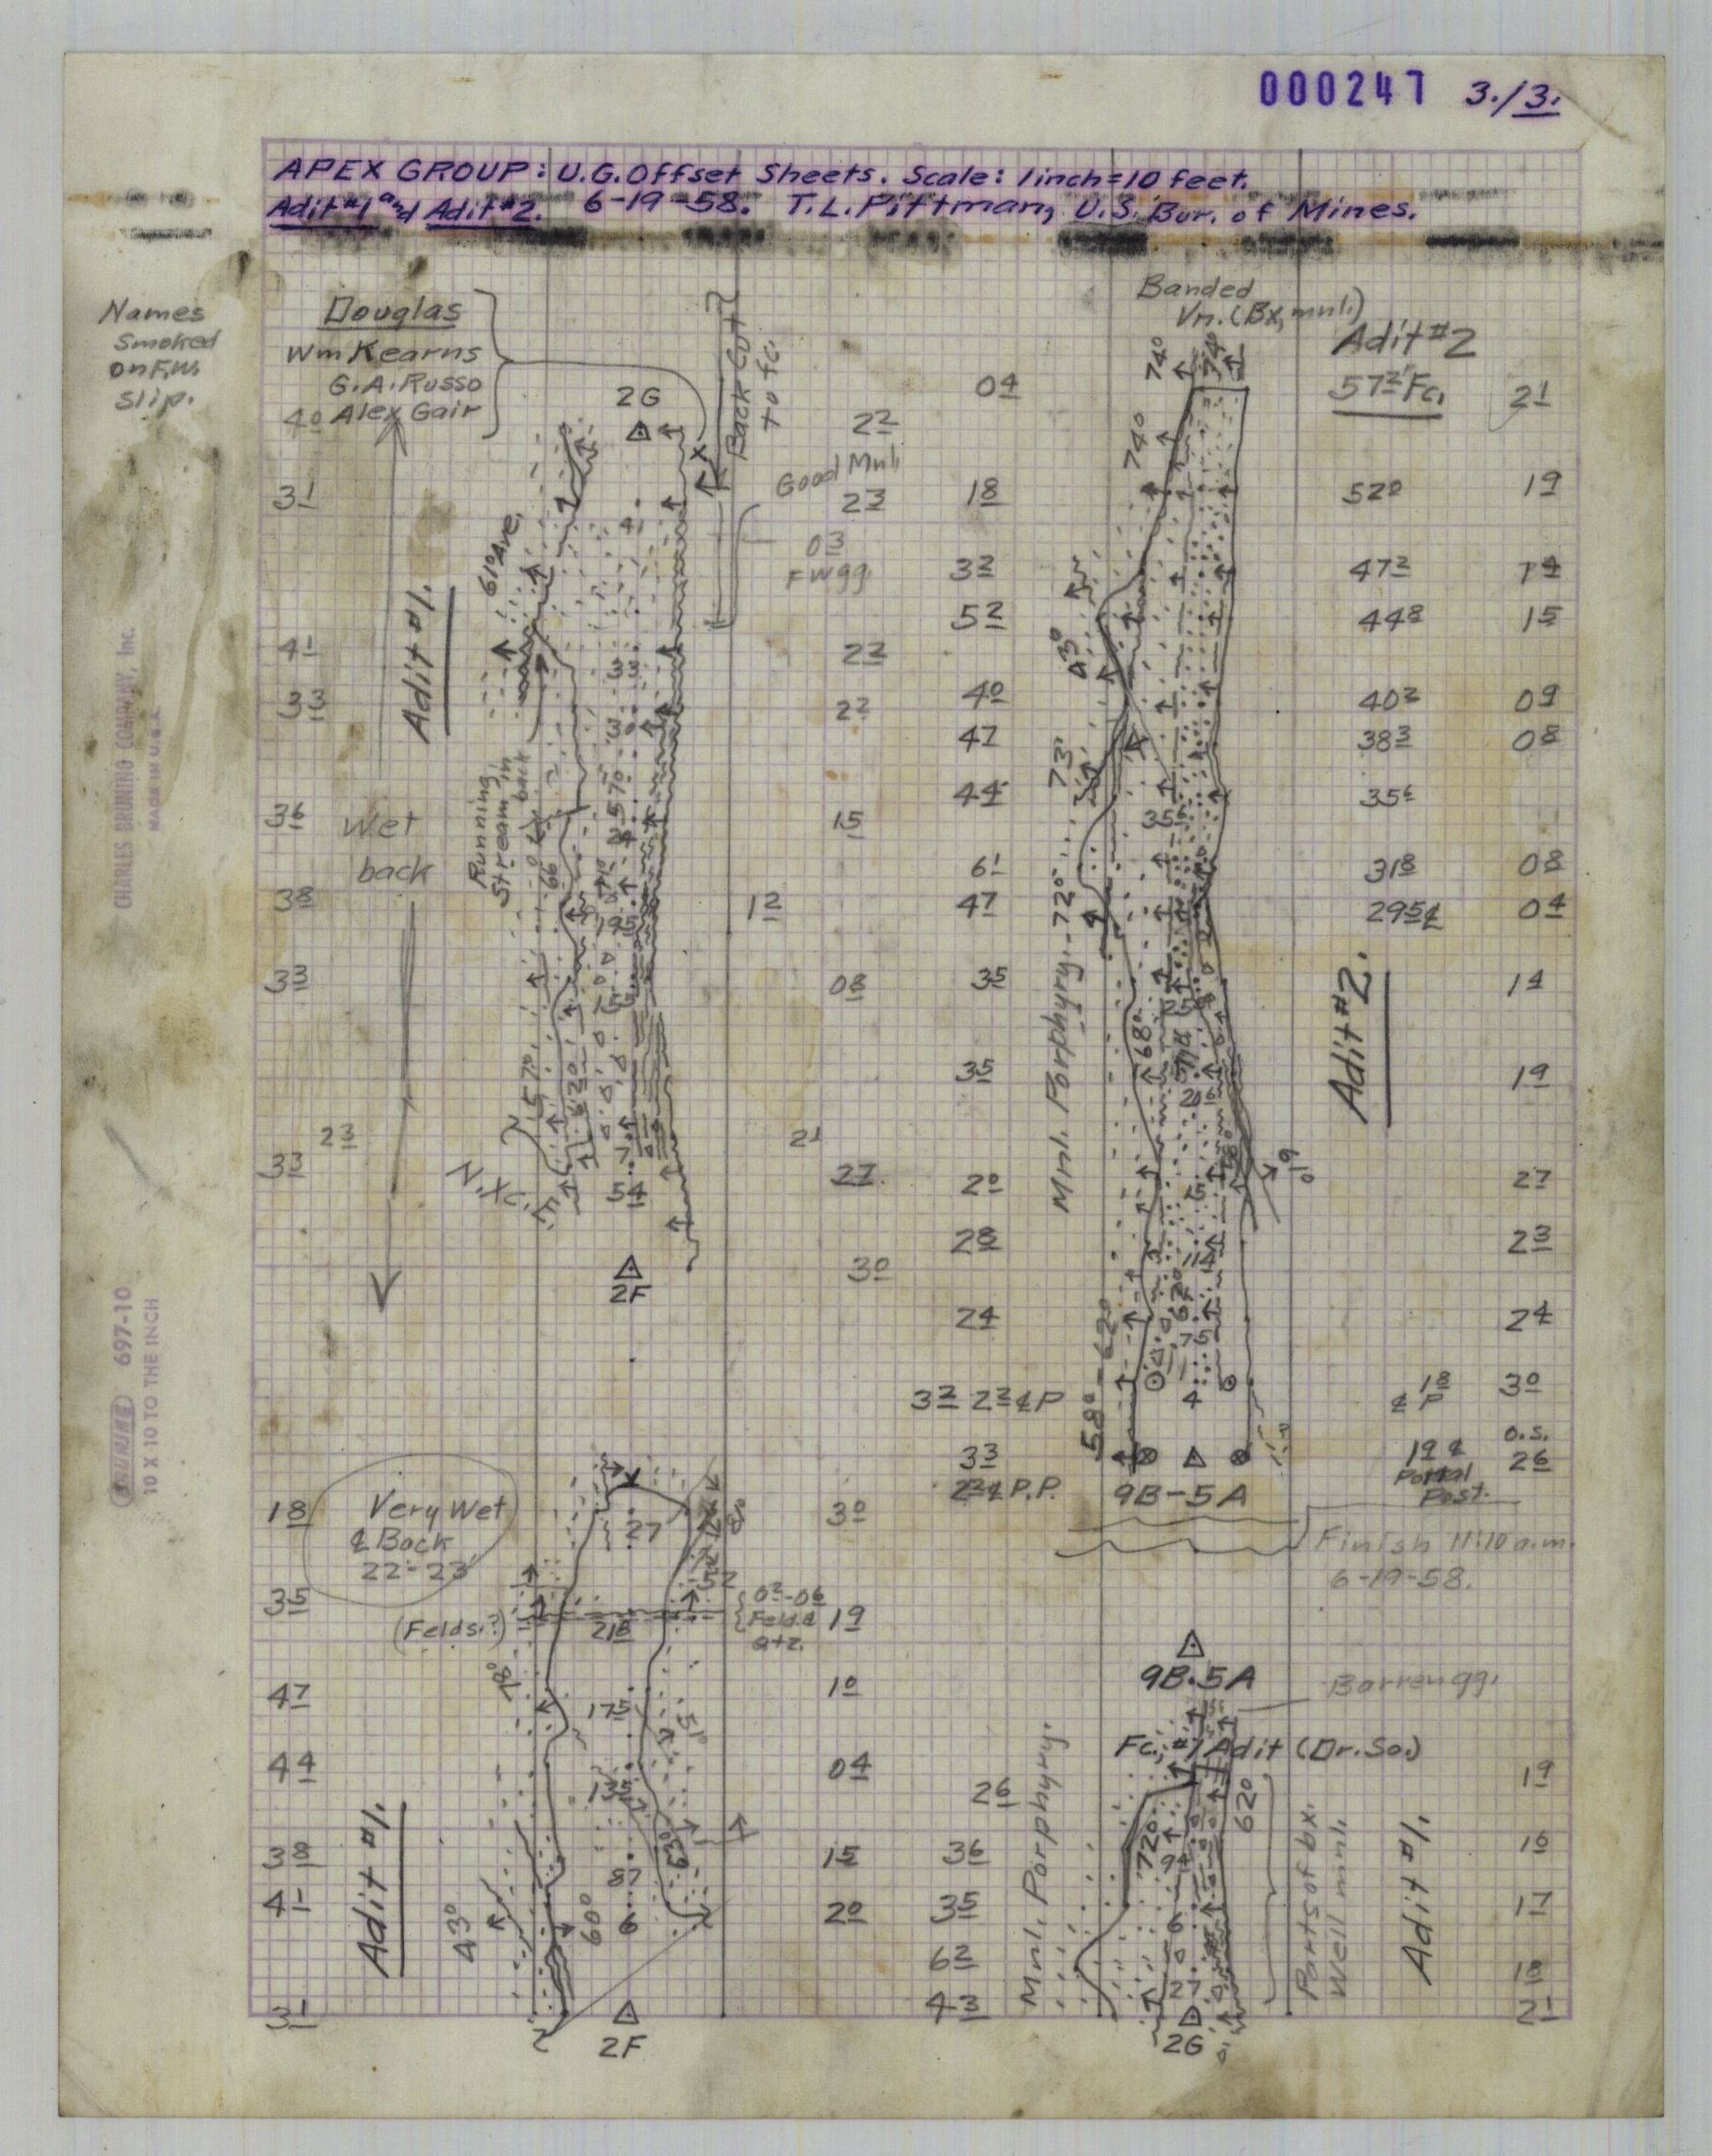 000247 3./3.
APEX GROUP: U.G. Offset Sheets. Scale: 1 inch=10 feet.
Adit #1 and Adit #2. 6-19-58. T.L. Pittman, U.S. Bur. of Mines.
Names
Smoked
on F.W.
Slip.
Douglas
Wm Kearns
G.A. Russo
Alex Gair
4 0
3 1
4 1
3 3
3 6
3 8
3 3
2 3
3 3
Adit #1.
61° Ave.
Wet
back
Running
Stream in
back
N.XC.
2G
41
33
3 0
57°
24
66°
71°
19 5
15
57°
62°
7
54
2F
Back Cut
to fc.
2 2
Good Mnl.
2 3
0 3
FW gg.
2 2
2 2
1 5
1 2
0 8
2 1
2 7
3 0
Very Wet
¢ Back
22'-23'
(Felds.?)
1 8
3 5
4 7
4 4
3 8
4 1
3 1
Adit #1.
43°
60°
78°
27
52°
21 8
17 5
51°
13 5
63°
8 7
6
2F
3 0
0 2-0 6
Feld. &
Qtz.
1 9
1 0
0 4
1 5
2 0
Banded
Vn. (Bx, mnl.)
Adit #2
57 2 Fc.
74°
74°
74°
0 4
1 8
3 2
5 2
4 0
4 7
4 4
6 1
4 7
3 5
3 5
2 0
2 8
2 4
3 2 2 2 ¢ P
3 3
2 2 ¢ P.P.
43°
73°
Mnl. Porphyry. 72°
58° - 62°
35 6
25
68°
21 6
15
61°
11 4
62°
7 5
4
9B-5A
52 0
47 2
44 8
40 2
38 3
35 6
31 8
29 5 ¢
2 1
1 9
1 4
1 5
0 9
0 8
0 8
0 4
1 4
1 9
2 7
2 3
2 4
3 0
Adit #2.
1 8
¢ P
o.s.
1 9 ¢
2 6
Portal
Post.
Finish 11:10 a.m.
6-19-58.
9B-5A
Barren gg.
Fc., #1 Adit (Dr. So.)
2 6
3 6
3 5
6 2
4 3
Mnl. Porphyry.
72°
62°
9 4
6
2 7
2G
Parts of bx.
Well mnl.
Adit #1.
1 9
1 6
1 7
1 8
2 1
CHARLES BRUNING COMPANY, Inc.
MADE IN U.S.A.
BRUNING 697-10
10 X 10 TO THE INCH